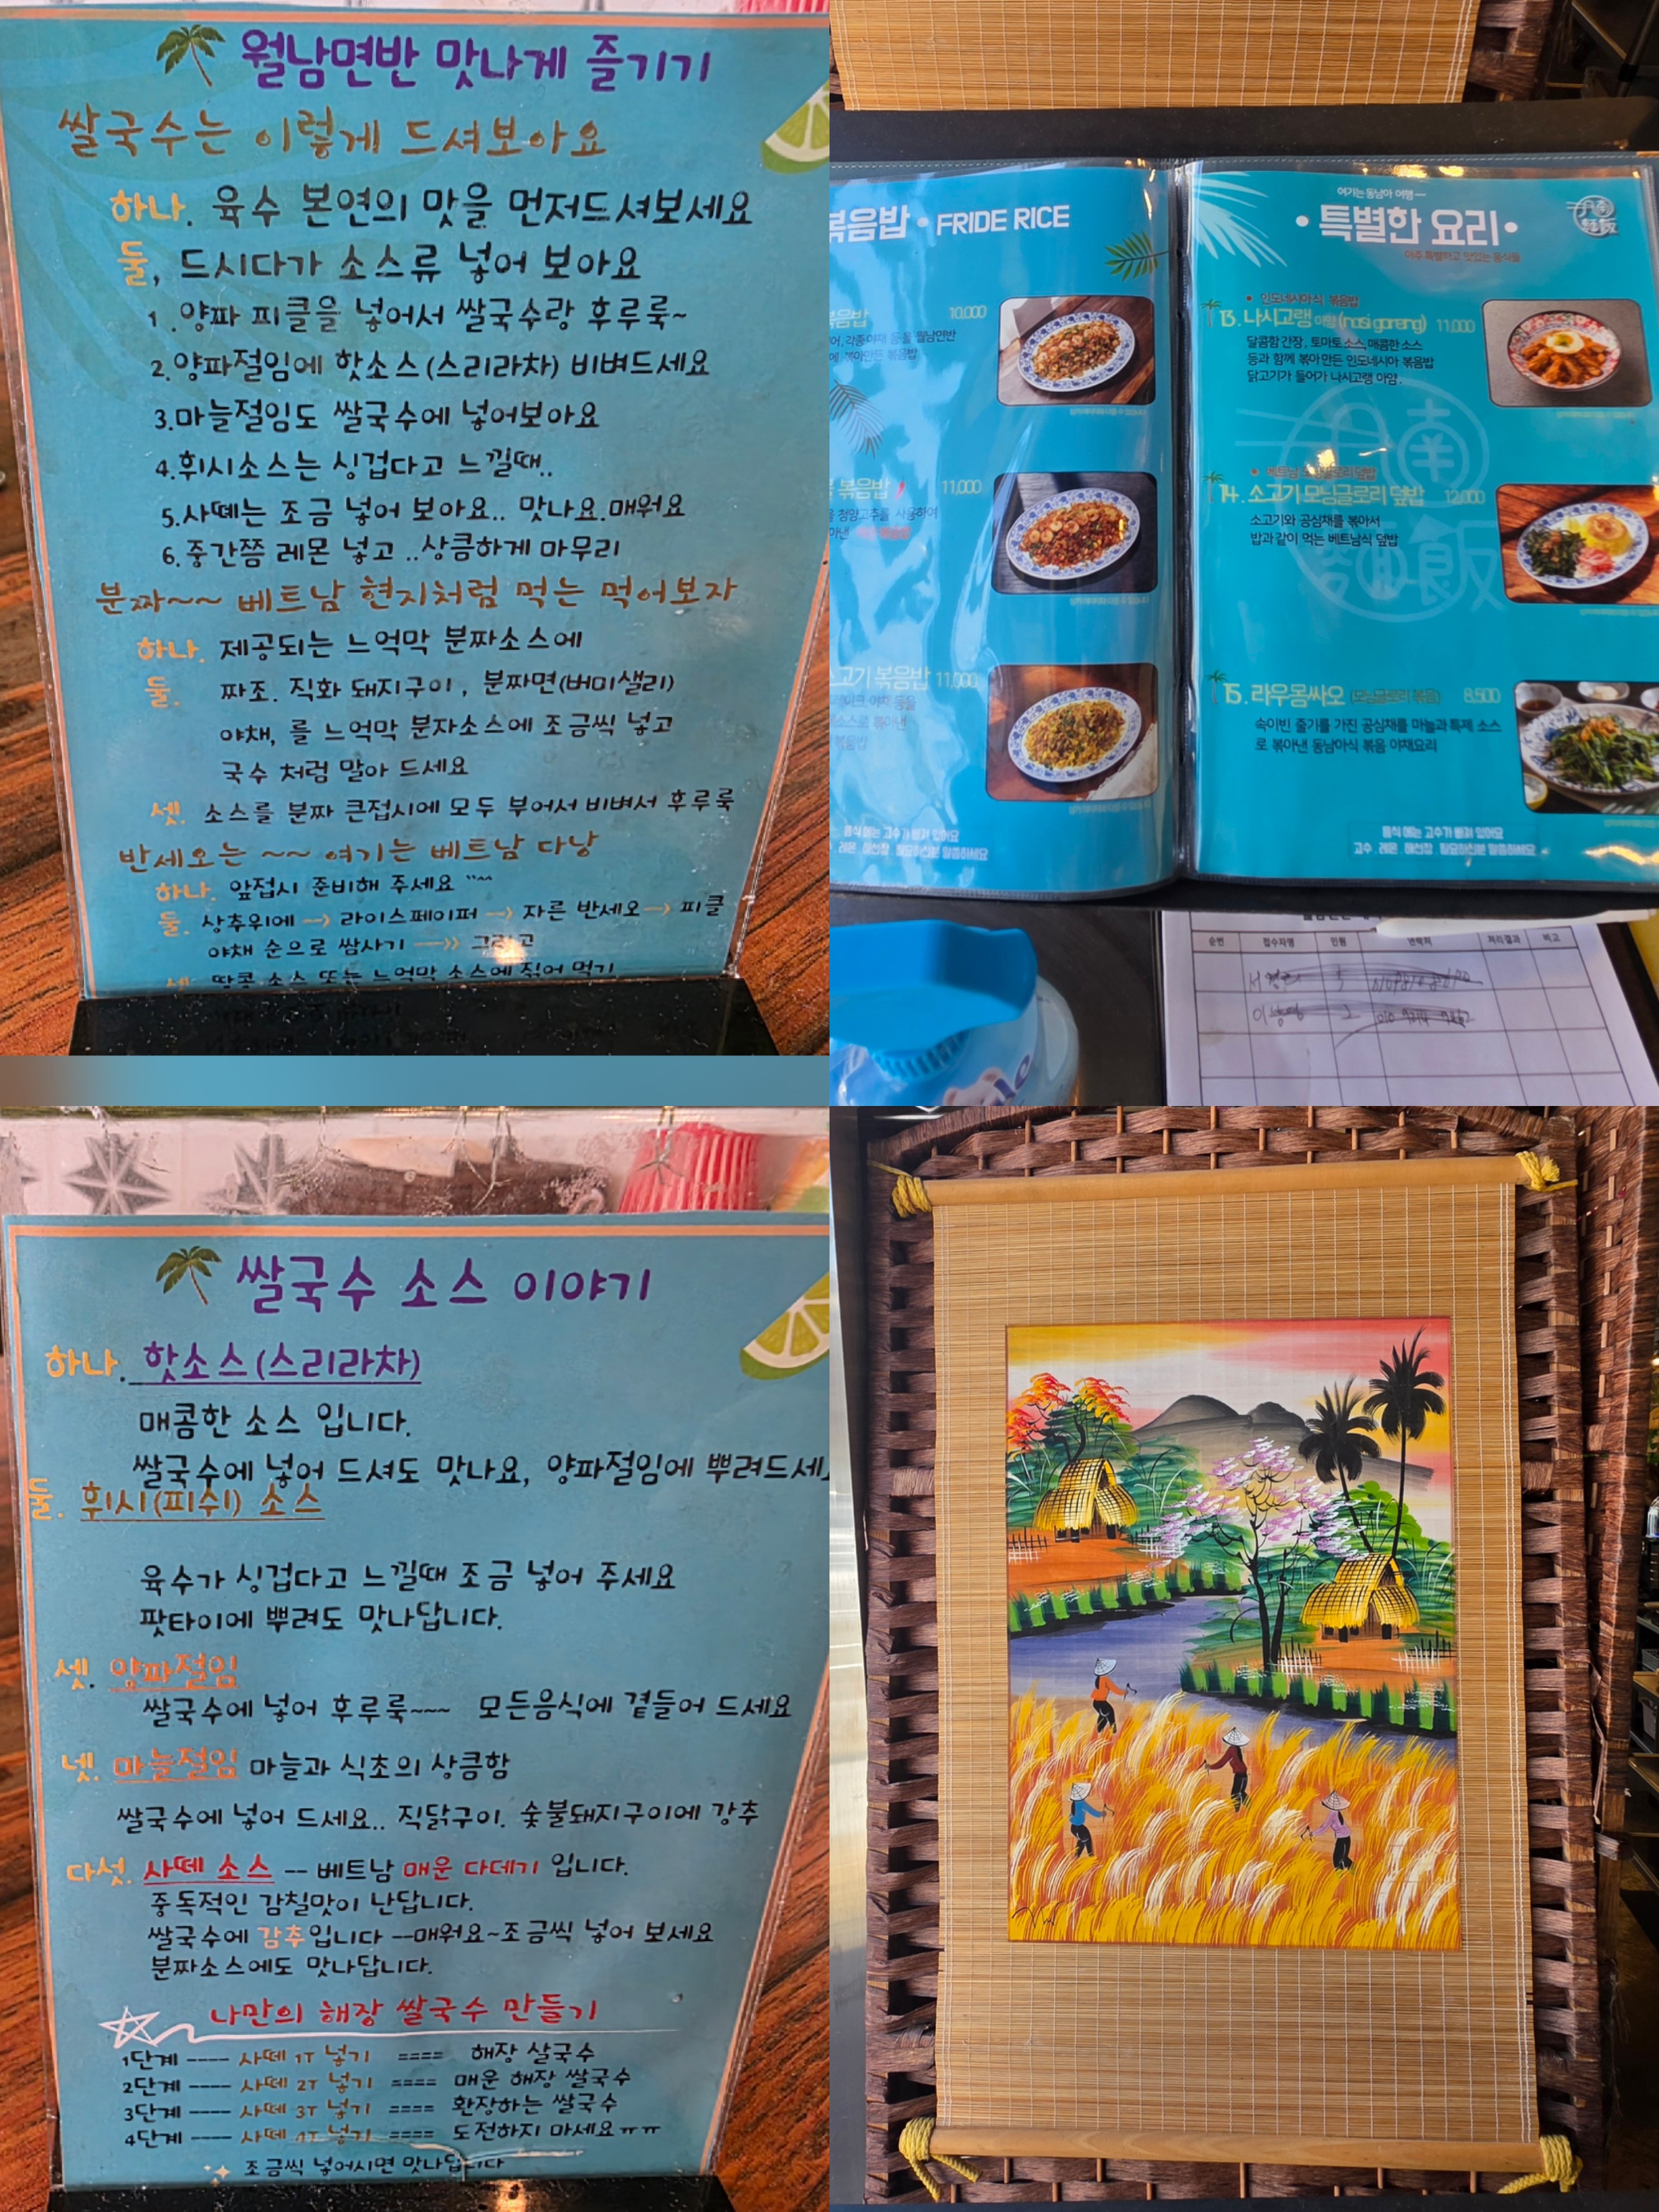 월남면반 맛나게 즐기기
쌀국수는 이렇게 드셔보아요
하나. 육수 본연의 맛을 먼저드셔보세요
둘, 드시다가 소스류 넣어 보아요
1.양파 피클을 넣어서 쌀국수랑 후루룩~
2.양파절임에 핫소스(스리라차) 비벼드세요
3.마늘절임도 쌀국수에 넣어보아요
4.휘시소스는 싱겁다고 느낄때..
5.사떼는 조금 넣어 보아요.. 맛나요.매워요
6.중간쯤 레몬 넣고 ..상큼하게 마무리
분짜~~ 베트남 현지처럼 먹는 먹어보자
하나. 제공되는 느억막 분짜소스에
둘. 짜조. 직화 돼지구이, 분짜면(버미샐리)
야채, 를 느억막 분자소스에 조금씩 넣고
국수 처럼 말아 드세요
셋. 소스를 분짜 큰접시에 모두 부어서 비벼서 후루룩
반세오는 ~~ 여기는 베트남 다낭
하나. 앞접시 준비해 주세요 ^^~
둘. 상추위에 → 라이스페이퍼 → 자른 반세오 → 피클
야채 순으로 쌈사기 →>> 그리고
셋. 땅콩 소스 또는 느억막 소스에 찍어 먹기
볶음밥 • FRIDE RICE
볶음밥 10,000
각종야채 등을 월남면반
볶아만든 볶음밥
볶음밥 11,000
청양고추를 사용하여
소고기 볶음밥 11,000
야채 등을
소스로 볶아낸
볶음밥
음식 에는 고수가 빠져 있어요
레몬 . 해선장 . 필요하신분 말씀하세요
여기는 동남아 여행 —
• 특별한 요리 •
아주 특별하고 맛있는 음식들
月南麵飯
• 인도네시아식 볶음밥
13. 나시고랭 아얌 (nasi goreng) 11,000
달콤함 간장, 토마토 소스, 매콤한 소스
등과 함께 볶아 만든 인도네시아 볶음밥
닭고기가 들어가 나시고랭 아얌.
14. 소고기 모닝글로리 덮밥 12,000
소고기와 공심채를 볶아서
밥과 같이 먹는 베트남식 덮밥
15. 라우몽싸오 (모닝글로리 볶음) 8,500
속이빈 줄기를 가진 공심채를 마늘과 특제 소스
로 볶아낸 동남아식 볶음 야채요리
음식 에는 고수가 빠져 있어요
고수 . 레몬 . 해선장 . 필요하신분 말씀하세요
순번 접수자명 인원 연락처 처리결과 비고
쌀국수 소스 이야기
하나. 핫소스(스리라차)
매콤한 소스 입니다.
쌀국수에 넣어 드셔도 맛나요, 양파절임에 뿌려드세
둘. 휘시(피쉬) 소스
육수가 싱겁다고 느낄때 조금 넣어 주세요
팟타이에 뿌려도 맛나답니다.
셋. 양파절임
쌀국수에 넣어 후루룩~~~ 모든음식에 곁들어 드세요
넷. 마늘절임 마늘과 식초의 상큼함
쌀국수에 넣어 드세요.. 직닭구이. 숯불돼지구이에 강추
다섯. 사떼 소스 -- 베트남 매운 다데기 입니다.
중독적인 감칠맛이 난답니다.
쌀국수에 강추입니다 --매워요~조금씩 넣어 보세요
분짜소스에도 맛나답니다.
나만의 해장 쌀국수 만들기
1단계 ---- 사떼 1T 넣기 ==== 해장 쌀국수
2단계 ---- 사떼 2T 넣기 ==== 매운 해장 쌀국수
3단계 ---- 사떼 3T 넣기 ==== 환장하는 쌀국수
4단계 ---- 사떼 4T 넣기 ==== 도전하지 마세요ㅠㅠ
조금씩 넣어시면 맛나답니다